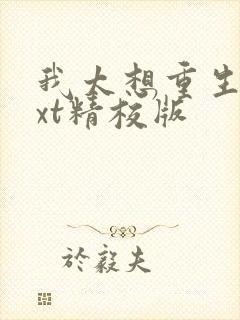 我大想重生
xt精校版
於毅夫